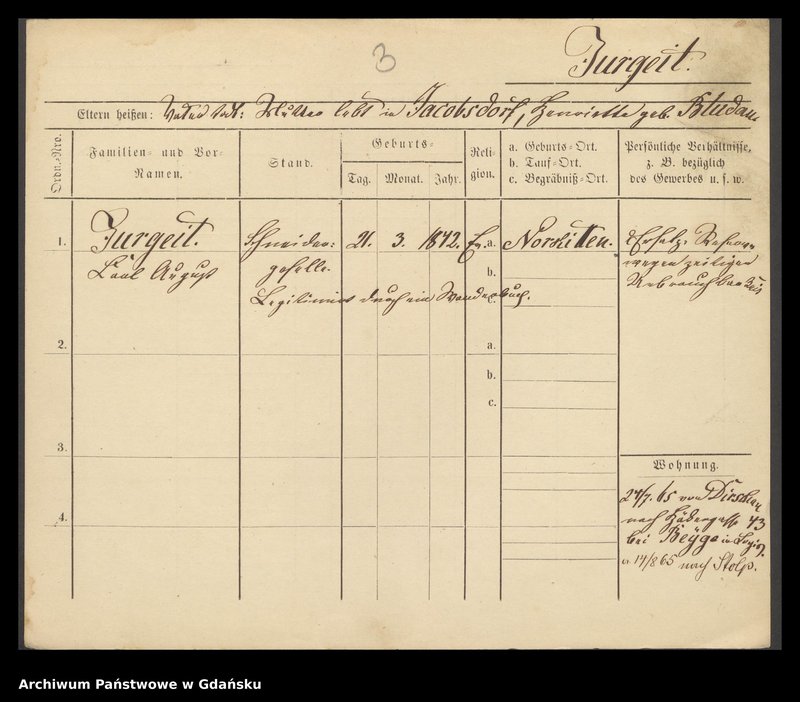 3
Jurgeit.
Eltern heißen: Vater todt: Mutter lebt in Jacobsdorf, Henriette geb. Bludau.
Ordn.-Nro.
Familien- und Vor-
Namen.
Stand.
Geburts-
Tag. Monat. Jahr.
Reli-
gion.
a. Geburts-Ort.
b. Tauf-Ort.
c. Begräbniß-Ort.
Persönliche Verhältnisse,
z. B. bezüglich
des Gewerbes u. s. w.
1. Jurgeit. Schneider- 21. 3. 1842. Ev. a. Norkitten. Ersatz-Reserve
Carl August geselle. b. wegen zeitiger
Legitimirt durch ein Wanderbuch. c. Unbrauchbarkeit
2. a.
b.
c.
3.
4.
Wohnung.
24/7. 65 von Dirschau
nach 43
bei Beyge in Logis.
14/8 65 nach Stolp.
Archiwum Państwowe w Gdańsku